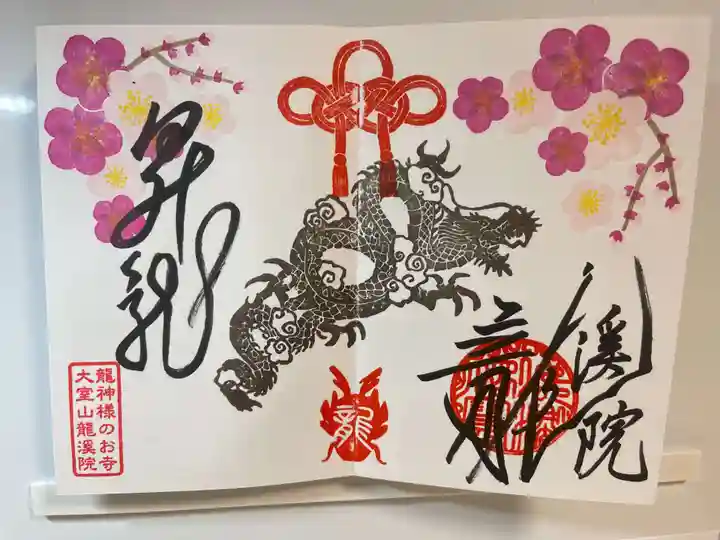 昇龍
龍神様のお寺
大室山龍溪院
龍
龍溪院